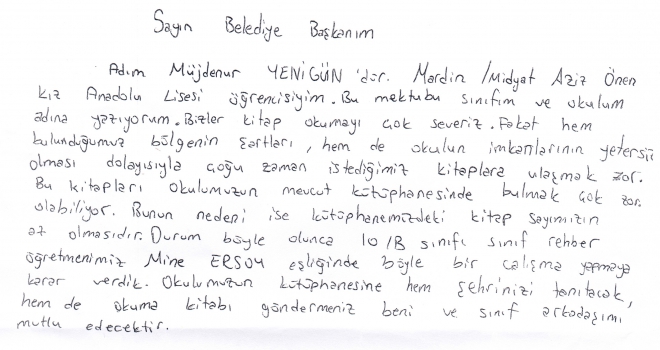 Sayın Belediye Başkanım
Adım Müjdenur YENİGÜN 'dür. Mardin /Midyat Aziz Önen
kız Anadolu Lisesi öğrencisiyim. Bu mektubu sınıfım ve okulum
adına yazıyorum. Bizler kitap okumayı çok severiz. Fakat hem
bulunduğumuz bölgenin şartları, hem de okulun imkanlarının yetersiz
olması dolayısıyla çoğu zaman istediğimiz kitaplara ulaşmak zor.
Bu kitapları okulumuzun mevcut kütüphanesinde bulmak çok zor
olabiliyor. Bunun nedeni ise kütüphanemizdeki kitap sayımızın
az olmasıdır. Durum böyle olunca 10/B sınıfı sınıf rehber
öğretmenimiz Mine ERSOY eşliğinde böyle bir çalışma yapmaya
karar verdik. Okulumuzun kütüphanesine hem şehrinizi tanıtacak,
hem de okuma kitabı göndermeniz beni ve sınıf arkadaşımı
mutlu edecektir.